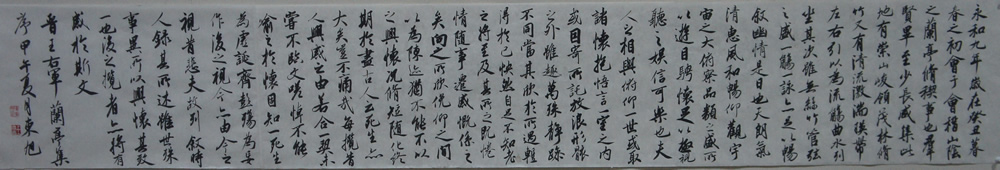 永和九年歲在癸丑暮
春之初會于會稽山陰
之蘭亭脩禊事也羣
賢畢至少長咸集此
地有崇山峻領茂林脩
竹又有清流激湍映帶
左右引以為流觴曲水列
坐其次雖無絲竹管弦
之盛一觴一詠亦足以暢
敘幽情是日也天朗氣
清惠風和暢仰觀宇
宙之大俯察品類之盛所
以遊目騁懷足以極視
聽之娛信可樂也夫
人之相與俯仰一世或取
諸懷抱悟言一室之內
或因寄所託放浪形骸
之外雖趣萬殊靜躁
不同當其欣於所遇暫
得於己快然自足不知老
之將至及其所之既惓
情隨事遷感慨係之
矣向之所欣俛仰之間
以為陳迹猶不能不以
之興懷況脩短隨化終
期於盡古人云死生亦
大矣豈不痛哉每攬昔
人興感之由若合一契未
嘗不臨文嗟悼不能
喻之於懷固知一死生
為虛誕齊彭殤為妄
作後之視今亦由今之
視昔悲夫故列敘時
人錄其所述雖世殊
事異所以興懷其致
一也後之攬者亦將有
感於斯文
晉王右軍蘭亭集
序甲午夏月東旭